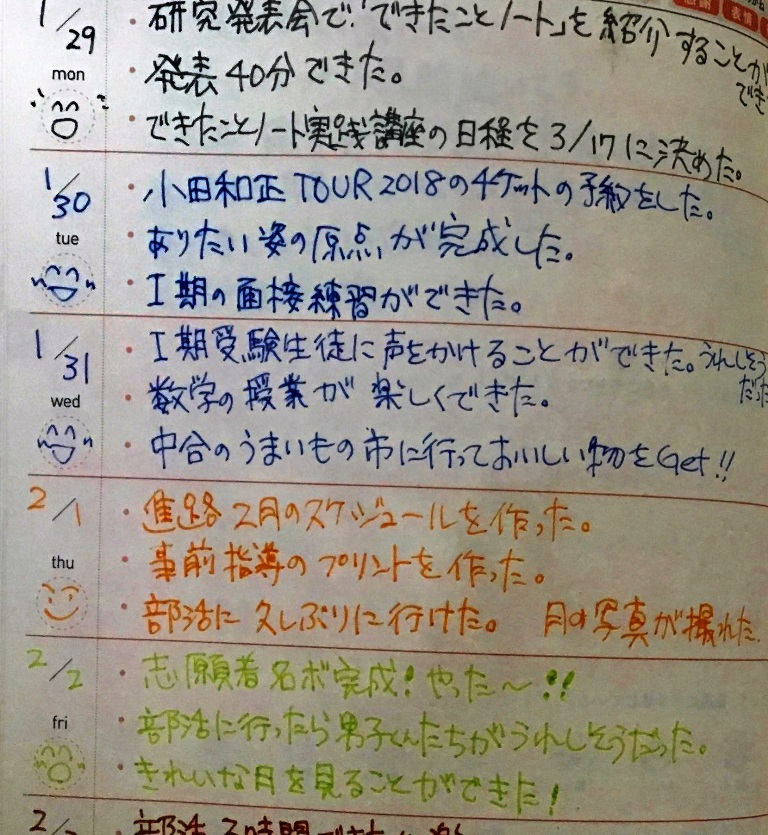 感謝
表情
1/29
mon
・研究発表会で「できたことノート」を紹介することが
でき
・発表40分できた。
・できたことノート実践講座の日程を3/17に決めた。
1/30
tue
・小田和正 TOUR 2018のチケットの予約をした。
・ありたい姿の原点が完成した。
・I期の面接練習ができた。
1/31
wed
・I期受験生徒に声をかけることができた。うれしそう
だった
・数学の授業が楽しくできた。
・中合のうまいもの市に行っておいしい物をGet!!
2/1
thu
・進路2月のスケジュールを作った。
・事前指導のプリントを作った。
・部活に久しぶりに行けた。 月の写真が撮れた。
2/2
fri
・志願者名ボ完成!やった〜!!
・部活に行ったら男子くんたちがうれしそうだった。
・きれいな月を見ることができた!
2/
・部活3時間できた